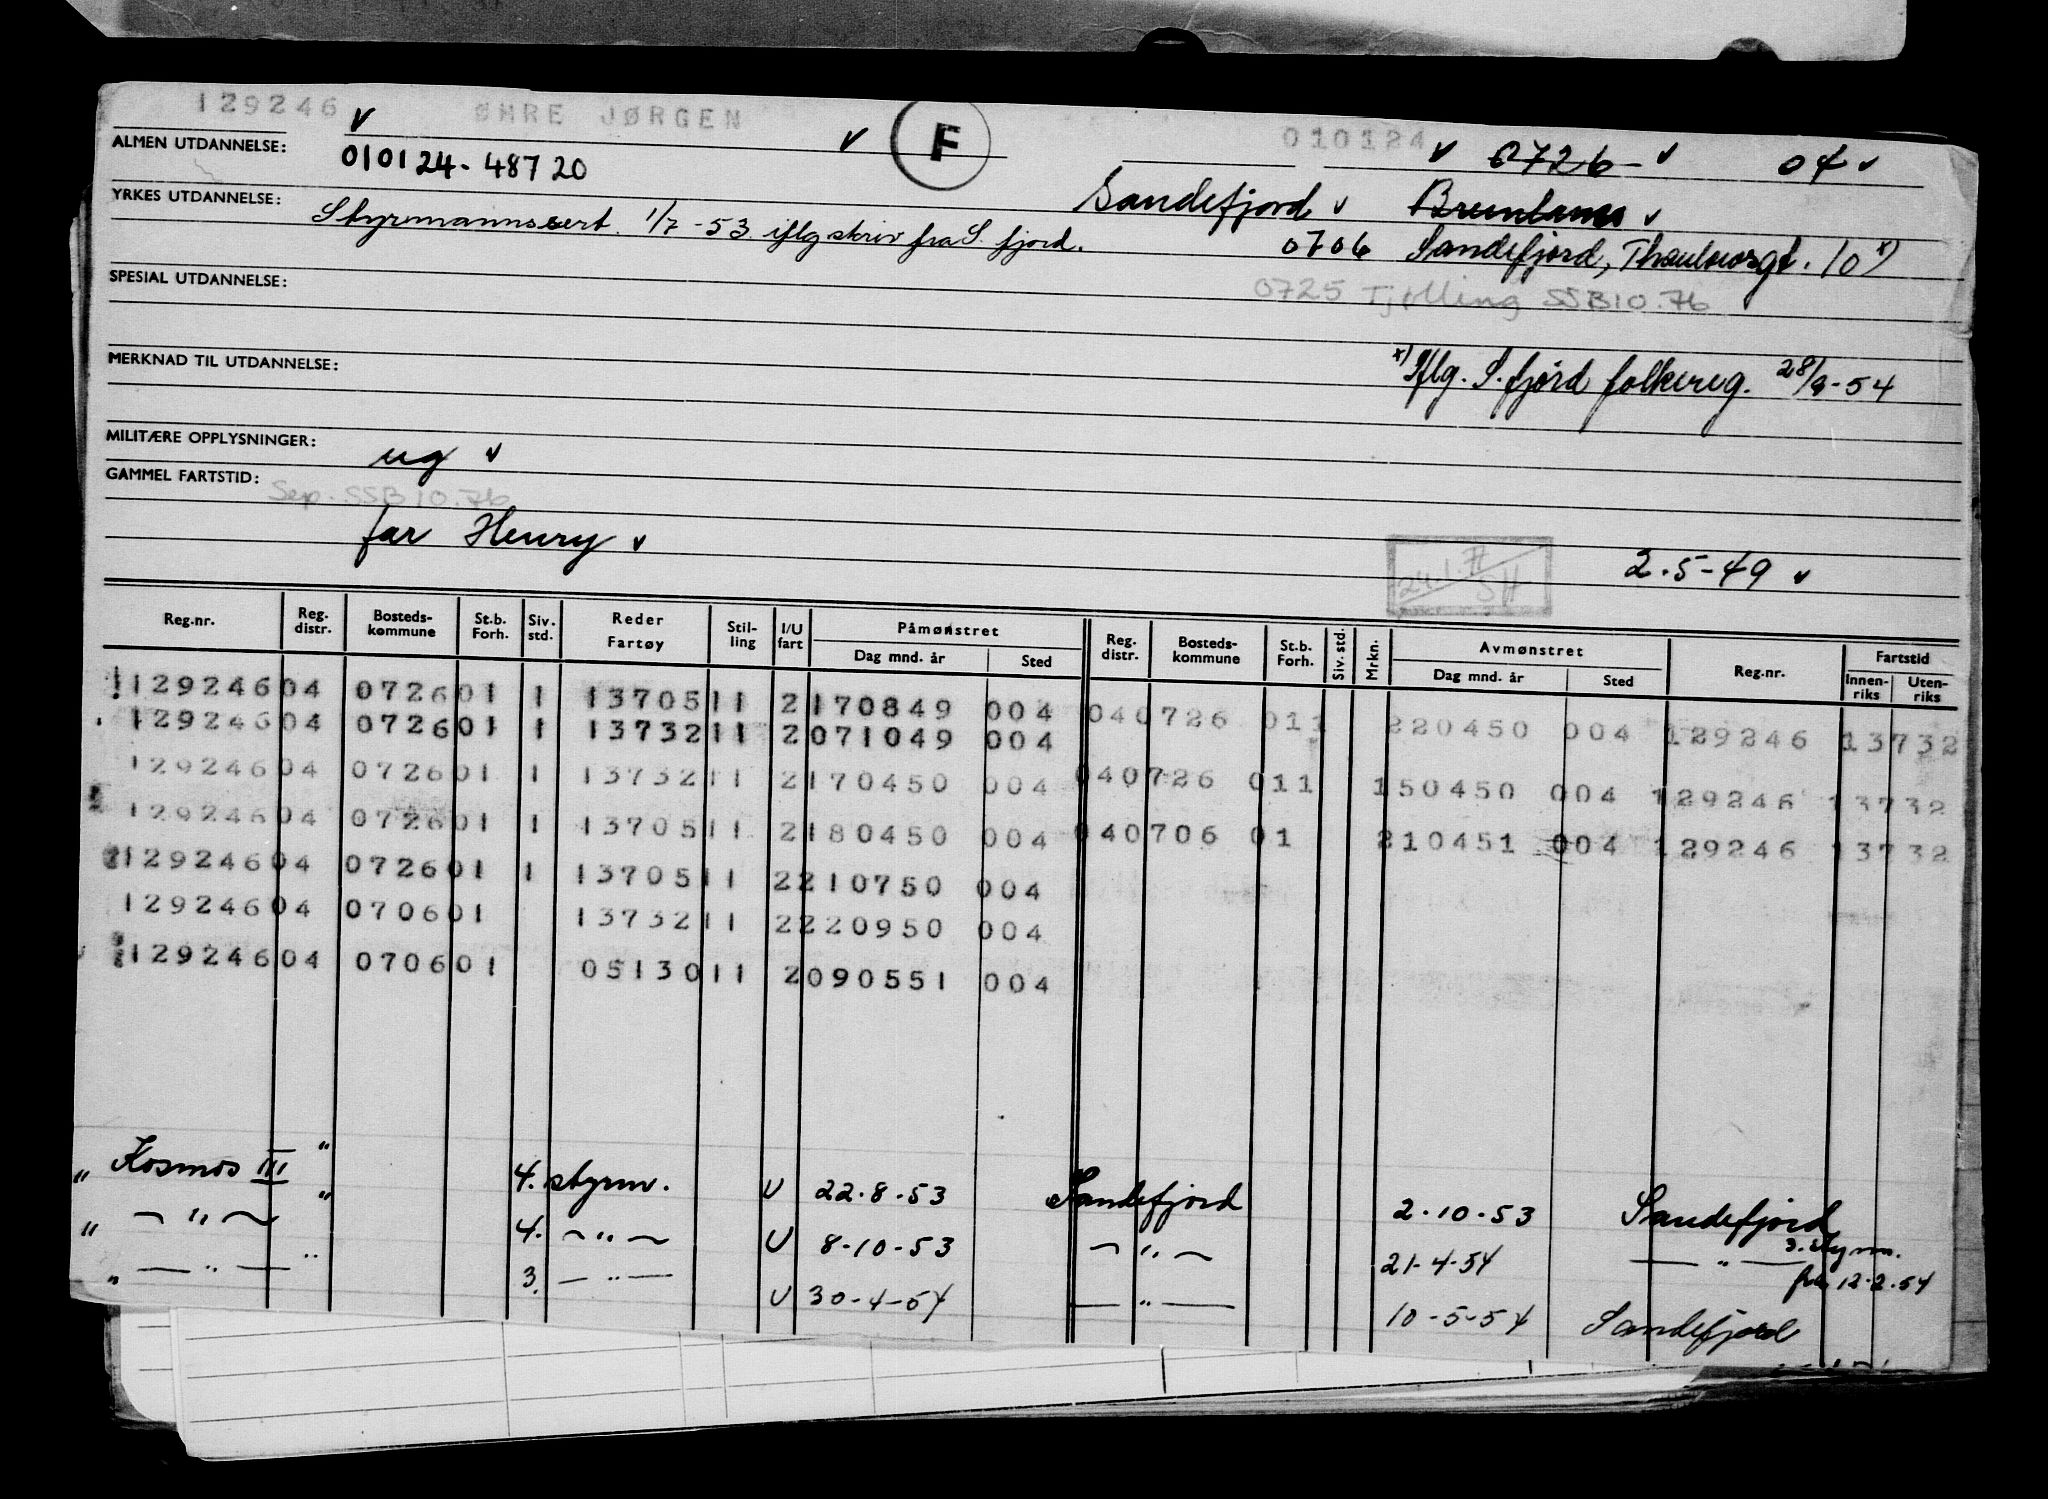 129246 ØMRE JØRGEN F 010124
ALMEN UTDANNELSE: 010124-48720 0726- 04
YRKES UTDANNELSE: Styrmannssert. 1/7-53 iflg skriv fra S.fjord. Sandefjord Brunlanes
0706 Sandefjord, Thaulowsgt. 10 x)
SPESIAL UTDANNELSE: 0725 Tjølling SSB 10.76
MERKNAD TIL UTDANNELSE: x) Iflg. S.fjord folkereg. 28/9-54
MILITÆRE OPPLYSNINGER: ug
GAMMEL FARTSTID: Sep. SSB 10.76
far Henry 2.5-49
Reg.nr. Reg. distr. Bosteds- kommune St.b. Forh. Siv. std. Reder Fartøy Stil- ling I/U fart Påmønstret Dag mnd. år Sted Reg. distr. Bosteds- kommune St.b. Forh. Siv. std. Mrkn. Avmønstret Dag mnd. år Sted Reg.nr. Fartstid Innen- riks Uten- riks
129246 04 0726 01 1 13705 11 2 170849 004 04 0726 01 1 220450 004 129246 13732
129246 04 0726 01 1 13732 11 2 071049 004
129246 04 0726 01 1 13732 11 2 170450 004 04 0726 01 1 150450 004 129246 13732
129246 04 0726 01 1 13705 11 2 180450 004 04 0706 01 210451 004 129246 13732
129246 04 0726 01 1 13705 11 2 210750 004
129246 04 0706 01 13732 11 2 220950 004
129246 04 0706 01 05130 11 2 090551 004
" Kosmos III " 4. styrm. U 22.8-53 Sandefjord 2.10-53 Sandefjord
" — " — " 4. — " — U 8-10-53 — " — 21-4-54 — " — 3. styrm. fra 12.2.54
" — " — " 3. — " — U 30-4-54 — " — 10-5-54 Sandefjord